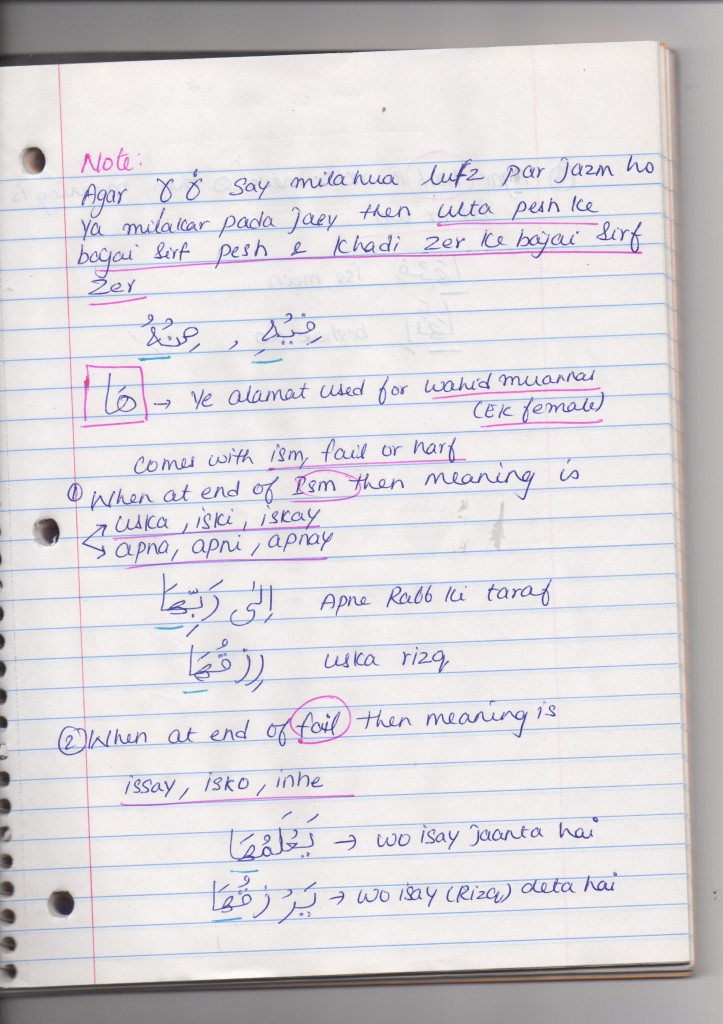 Note:
Agar ۃ ۃٗ say milahua lufz par jazm ho
ya milakar pada jaey then ulta pesh ke
bajai sirf pesh & khadi zer ke bajai sirf
zer
مِنْهُ , فِيْهِ
هَا → Ye alamat used for wahid muannas
(Ek female)
comes with ism, fail or harf
① When at end of Ism then meaning is
→ uska, iski, iskay
→ apna, apni, apnay
اِلٰى رَبِّهَا Apne Rabb ki taraf
رِزْقُهَا uska rizq
② When at end of fail then meaning is
issay, isko, inhe
يَعْلَمُهَا → wo isay jaanta hai
يَرْزُقُهَا → wo isay (Rizq) deta hai